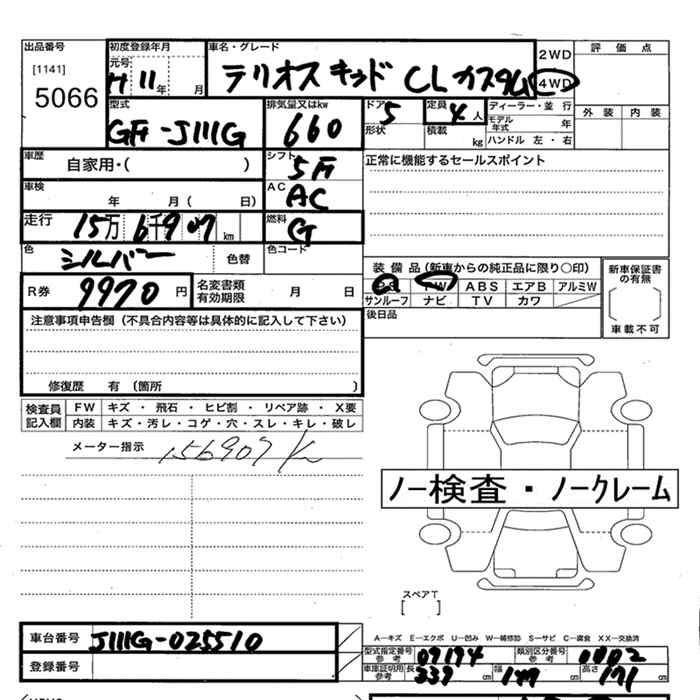 出品番号
[1141]
5066
初度登録年月
元号
H 11 年 月
車名・グレード
テリオス キッド CL カスタム
2WD
4WD
評価点
外装 内装
型式
GF-J111G
排気量又はkw
660
ドア
5
形状
定員
4 人
積載
kg
ディーラー・並行
モデル年式 年
ハンドル 左・右
車歴
自家用・( )
シフト
5F
正常に機能するセールスポイント
車検
年 月( 日)
AC
AC
走行
15万 6千907 km
燃料
G
色
シルバー
色替
色コード
装備品(新車からの純正品に限り○印)
PS PW ABS エアB アルミW
サンルーフ ナビ TV カワ
新車保証書の有無
車載不可
R券 9970 円
名変書類有効期限 月 日
後日品
注意事項申告欄(不具合内容等は具体的に記入して下さい)
修復歴 有(箇所 )
検査員記入欄
FW キズ・飛石・ヒビ割・リペア跡・X要
内装 キズ・汚レ・コゲ・穴・スレ・キレ・破レ
メーター指示 156907 K
ノー検査・ノークレーム
スペアT
[ ]
車台番号 J111G-025510
登録番号
A-キズ E-エクボ U-凹み W-補修跡 S-サビ C-腐食 XX-交換済
型式指定番号 参考 09194
類別区分番号 参考 0002
車庫証明用 参考 長さ 339 cm 幅 cm 高さ 171 cm